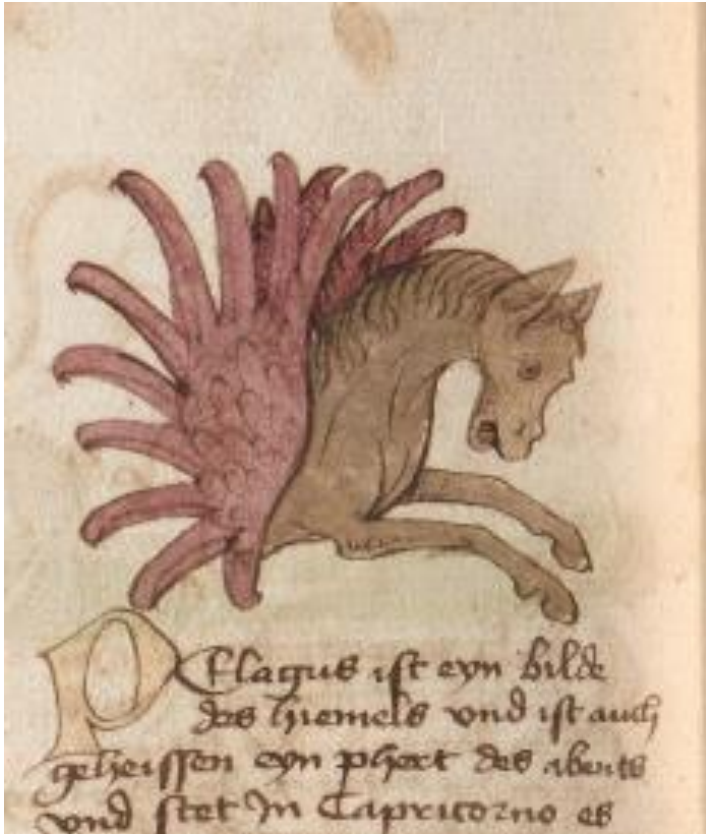 Pelagus ist eyn bilde
des hiemels vnd ist auch
geheissen eyn phert des abents
vnd stet Jn Capricorno es